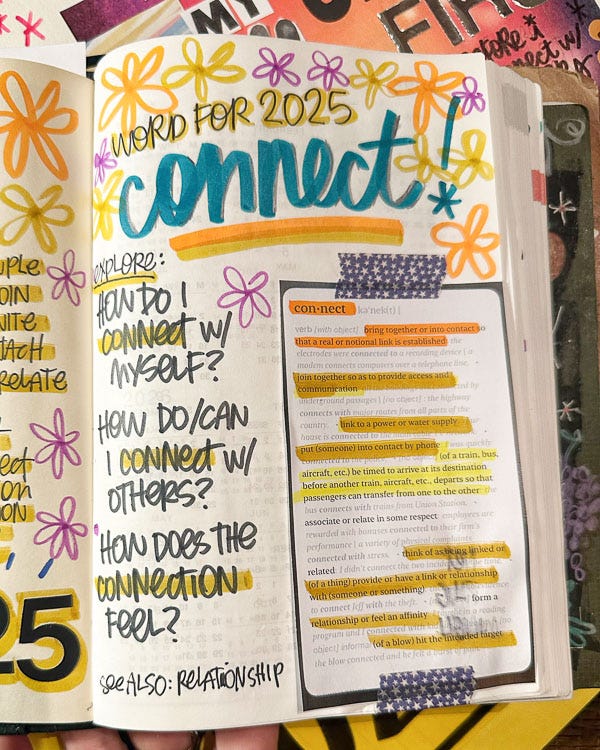 MY
WORD FOR 2025
connect!
EXPLORE:
HOW DO I
CONNECT W/
MYSELF?
HOW DO/CAN
I CONNECT W/
OTHERS?
HOW DOES THE
CONNECTION
FEEL?
see ALSO: RELATIONSHIP
con·nect kəˈnek(t)
verb [with object] bring together or into contact so
that a real or notional link is established: the
electrodes were connected to a recording device | a
modem connects computers over a telephone line.
join together so as to provide access and
communication
underground passages | [no object] : the highway
connects with major routes from all parts of the
country.
link to a power or water supply
house is connected to the
put (someone) into contact by phone
was quickly
(of a train, bus,
aircraft, etc.) be timed to arrive at its destination
before another train, aircraft, etc., departs so that
passengers can transfer from one to the other
bus connects with trains from Union Station.
associate or relate in some respect employees are
rewarded with bonuses connected to their firm's
performance | a variety of physical complaints
connected with stress. · think of as being linked or
related I didn't connect the two incidents at the time.
(of a thing) provide or have a link or relationship
with (someone or something)
to connect Jeff with the theft. · form a
relationship or feel an affinity
program and I connected
object] informal (of a blow) hit the intended target
the blow connected and he felt a burst of
RELATE
25